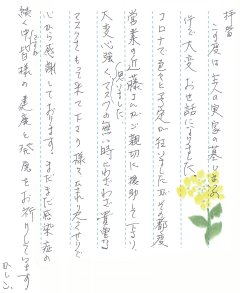 拝啓
この度は主人の実家の墓じまいの
件で大変お世話になりました。
コロナで色々と予定が狂いましたがその都度
営業の近藤さんが親切に援助して下さり、
大変心強く思いました。マスクの無い時にわざわざ貴重な
マスクをもって来て下さり様々なお心づかいで
心から感謝しております。まだまだ感染症の
続く中ですが皆様の健康と発展をお祈りしています
かしこ